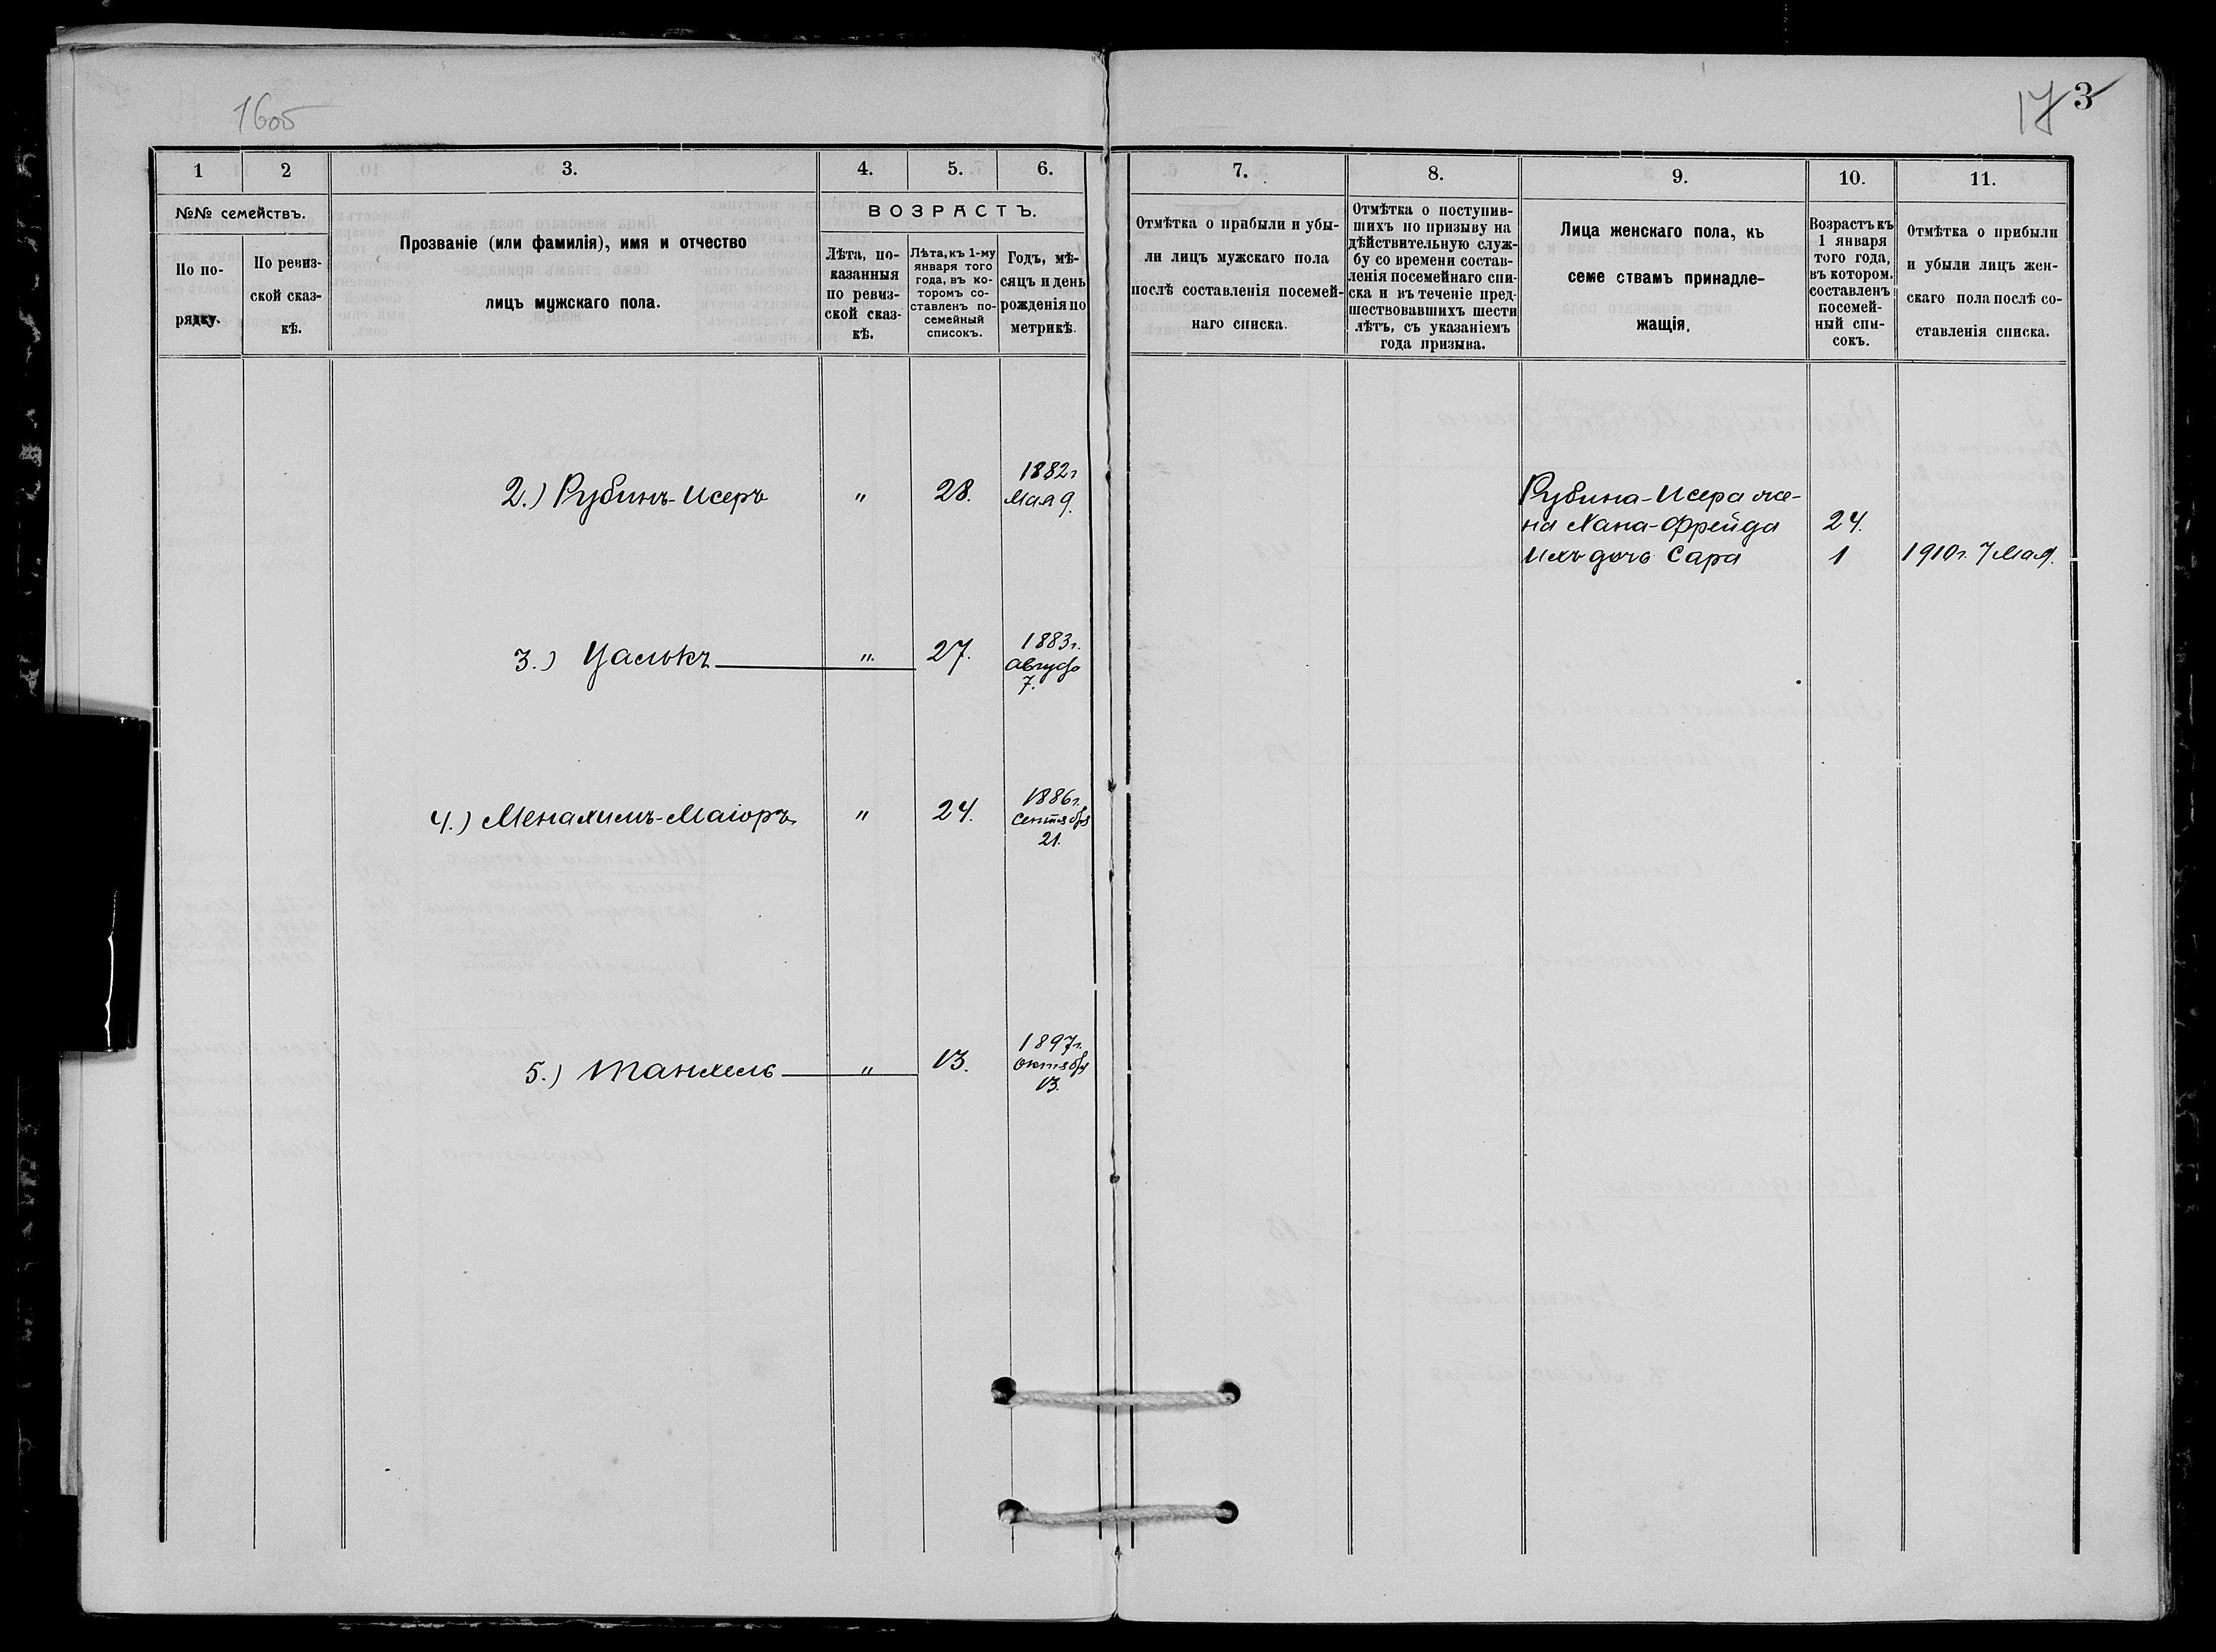 16об
17 3
1 2 3. 4. 5. 6. 7. 8. 9. 10. 11.
№№ семействъ.
По по-
рядку.
По ревиз-
ской сказ-
кѣ.
Прозваніе (или фамилія), имя и отчество
лицъ мужскаго пола.
ВОЗРАСТЪ.
Лѣта, по-
казанныя
по ревиз-
ской сказ-
кѣ.
Лѣта, къ 1-му
января того
года, въ ко-
торомъ со-
ставленъ по-
семейный
списокъ.
Годъ, мѣ-
сяцъ и день
рожденія по
метрикѣ.
Отмѣтка о прибыли и убы-
ли лицъ мужскаго пола
послѣ составленія посемей-
наго списка.
Отмѣтка о поступив-
шихъ по призыву на
дѣйствительную служ-
бу со времени состав-
ленія посемейнаго спи-
ска и въ теченіе пред-
шествовавшихъ шести
лѣтъ, съ указаніемъ
года призыва.
Лица женскаго пола, къ
семе ствамъ принадле-
жащія.
Возрастъ къ
1 января
того года,
въ котором.
составленъ
посемей-
ный спи-
сокъ.
Отмѣтка о прибыли
и убыли лицъ жен-
скаго пола послѣ со-
ставленія списка.
2.) Рубинъ-Исеръ " 28. 1882г
Мая 9.
Рубина-Исера же-
на Хана-Фрейда 24.
Ихъ дочь Сара 1 1910г. 7 Мая.
3.) Цалькъ " 27. 1883г.
Августа
7.
4.) Менахимъ-Маіоръ " 24. 1886г.
Сентября
21.
5.) Танхель " 13. 1897г.
Октября
13.